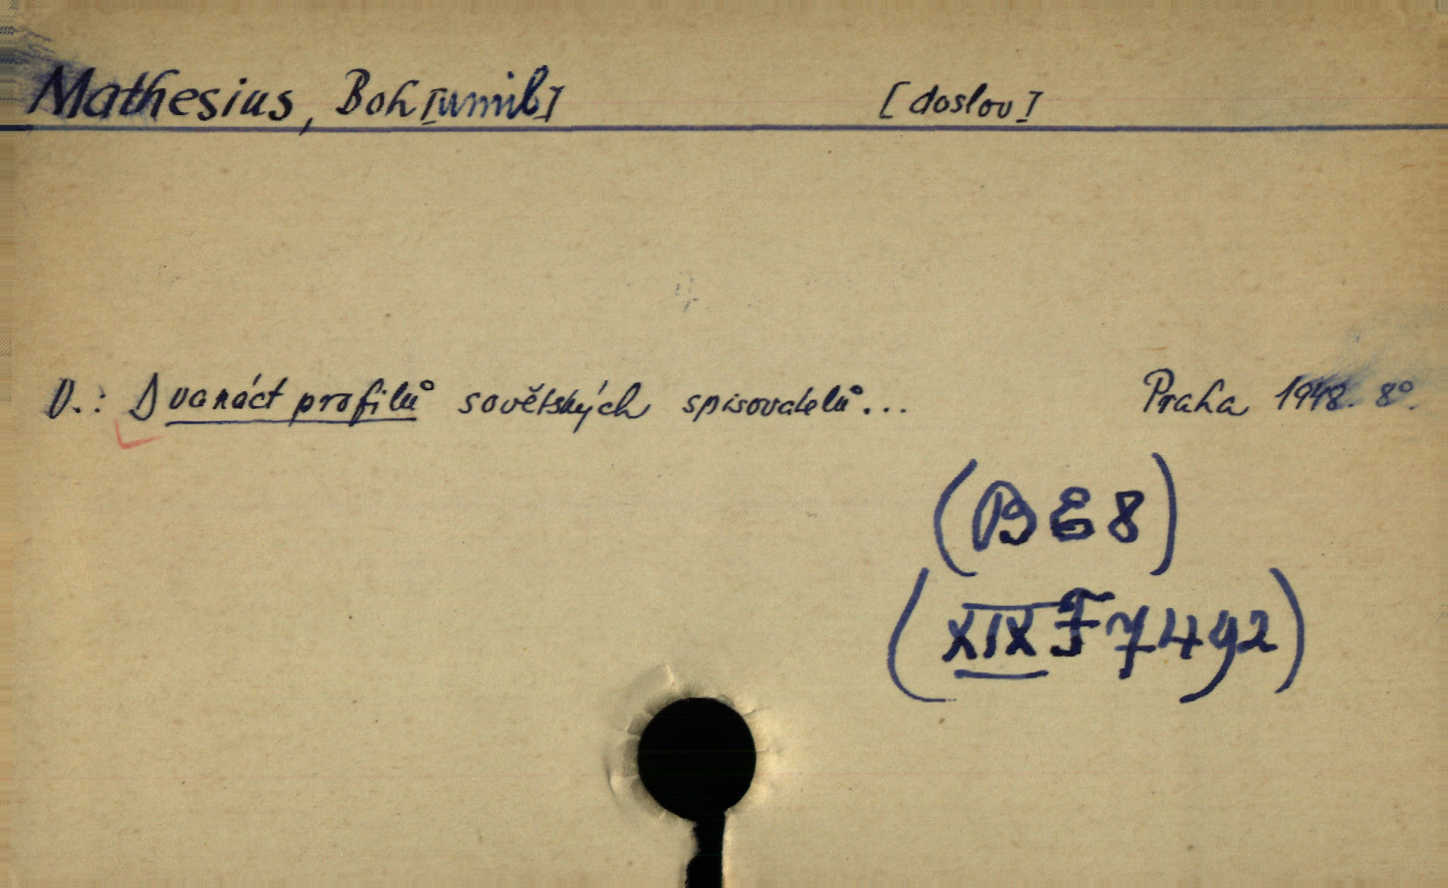 Mathesius, Boh[umil] [doslov]
V.: Dvanáct profilů sovětských spisovatelů... Praha 1948. 8°.
(B E 8)
(XIX F 7492)